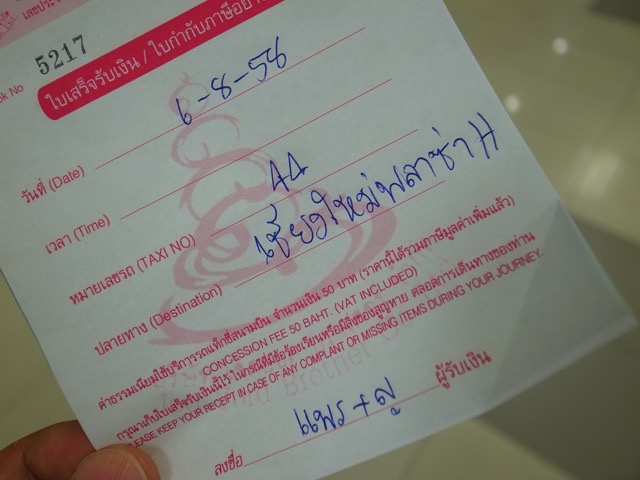 เลขประจ
ok No 5217
ใบเสร็จรับเงิน / ใบกำกับภาษีอย่า
วันที่ (Date) 6-8-58
เวลา (Time)
หมายเลขรถ (TAXI NO) 44
ปลายทาง (Destination) เชียงใหม่พลาซ่า H
ค่าธรรมเนียมใช้บริการรถแท็กซี่สนามบิน จำนวนเงิน 50 บาท (ราคานี้ได้รวมภาษีมูลค่าเพิ่มแล้ว)
CONCESSION FEE 50 BAHT. (VAT INCLUDED)
กรุณาเก็บใบเสร็จรับเงินนี้ไว้ ในกรณีที่มีข้อร้องเรียนหรือมีสิ่งของสูญหาย ตลอดการเดินทางของท่าน
LEASE KEEP YOUR RECEIPT IN CASE OF ANY COMPLAINT OR MISSING ITEMS DURING YOUR JOURNEY.
ลงชื่อ แพร+ลู ผู้รับเงิน